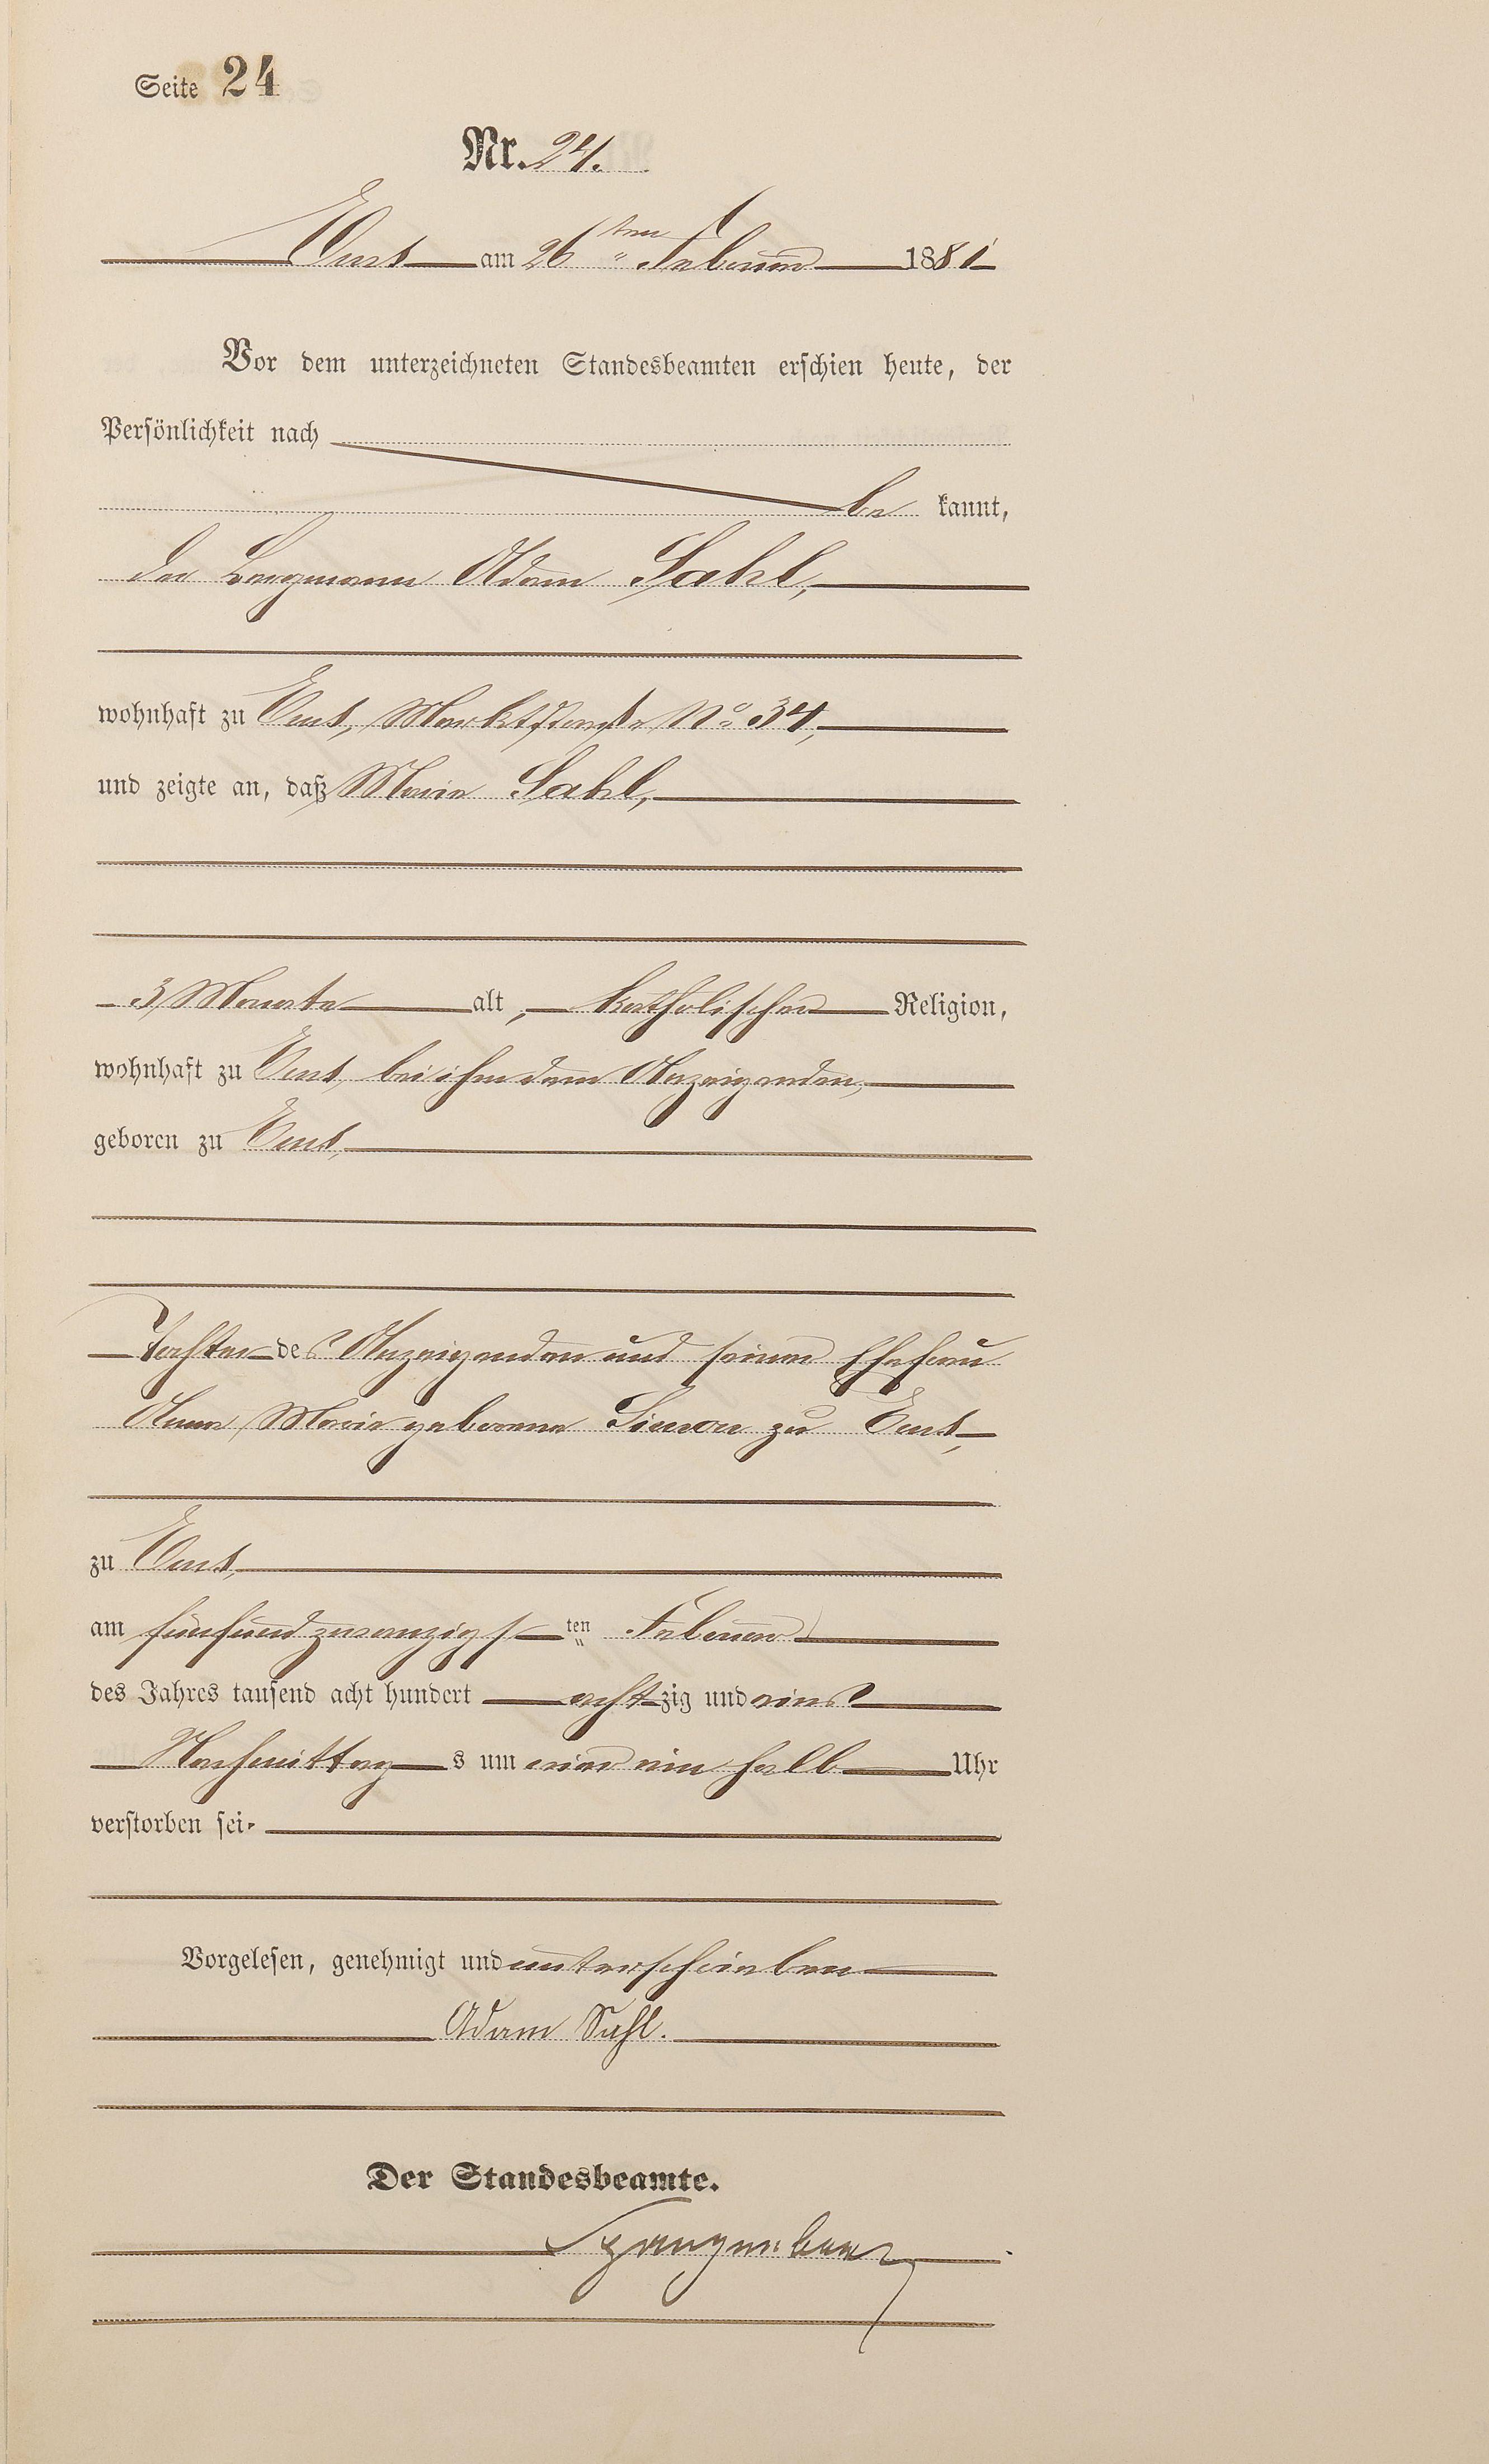 Seite 24
Nr. 24.
Ems am 26ten Februar 1881
Vor dem unterzeichneten Standesbeamten erschien heute, der
Persönlichkeit nach
be kannt,
der Bergmann Adam Sahl,
wohnhaft zu Ems, Marktstraße No 34,
und zeigte an, daß Marie Sahl,
3 Monate alt, katholischer Religion,
wohnhaft zu Ems, bei ihm dem Anzeigenden,
geboren zu Ems,
Tochter des Anzeigenden und seiner Ehefrau
Anna Marie geborene Simon zu Ems,
zu Ems,
am fünfundzwanzigsten Februar
des Jahres tausend acht hundert achtzig und eins
Nachmittags um vier ein halb Uhr
verstorben sei.
Vorgelesen, genehmigt und unterschrieben
Adam Sahl.
Der Standesbeamte.